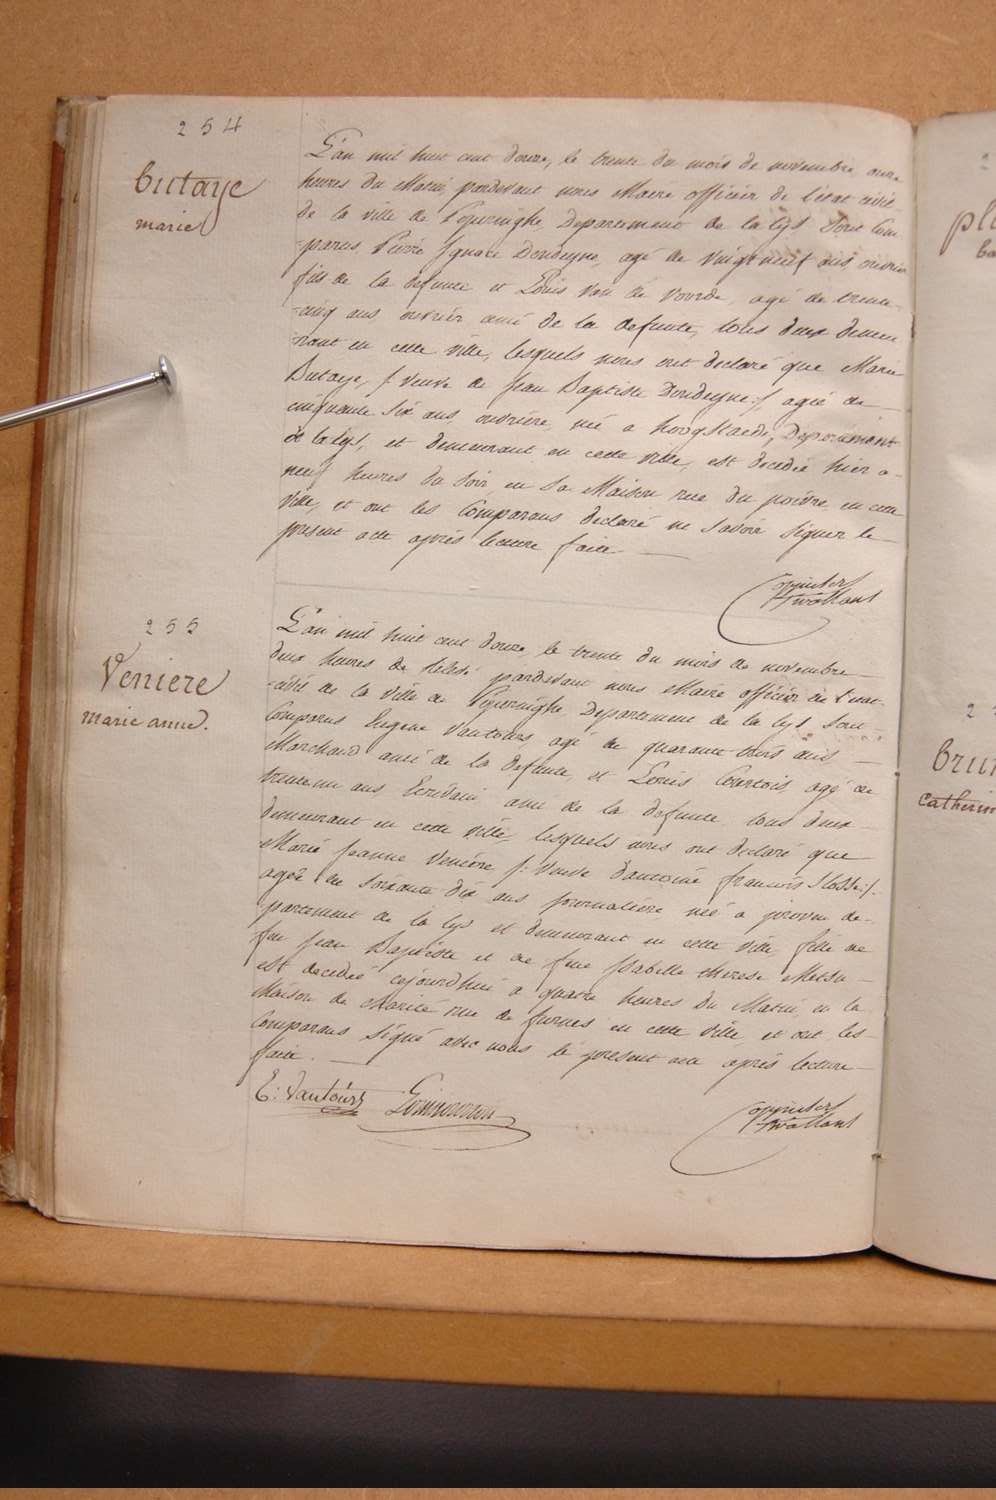 254
butaye
marie
L'an mil huit cent douze, le trente du mois de novembre onze
heures du Matin, pardevant nous Maire officier de l'etat civil
de la ville de Poperinghe, Departement de la lys Sont Com
-parus Pierre Ignace Dondeyne, agé de vingt neuf ans ouvrier
fils de la defunte et Louis Van de Voorde, agé de trente
-cinq ans ouvrier ami de la defunte, tous deux demeu
rant en cette ville, lesquels nous ont declaré que Marie
Butaye, /: veuve de Jean Baptiste Dondeyne :/ agée de
cinquante Six ans, ouvrière, née a hoogstaede, Departement
de la lys, et demeurant en cette ville, est decedée hier a
neuf heures du Soir en Sa Maison rue du poivre en cette
Ville, et ont les Comparans declaré ne Savoir Signer le
present acte après lecture faite
255
Veniere
marie anne.
L'an mil huit cent douze, le trente du mois de novembre
deux heures de relevé pardevant nous Maire officier de l'etat
-civil de la ville de Poperinghe, Departement de la lys Sont
Comparus Eugene Vantours, agé de quarante trois ans
Marchand ami de la defunte, et Louis Courtois agé de
trente un ans Ecrivain ami de la defunte tous deux
demeurant en cette ville, lesquels nous ont declaré que
Marie Jeanne Venière /: Veuve d'antoine francois :/
agée de Soixante dix ans journalière, née a proven de-
partement de la lys et demeurant en cette ville fille de
feu Jean Baptiste et de feue Isabelle therese
est decedée cejourd'hui a quatre heures du Matin, en la
Maison de charité rue de furnes en cette ville, et ont les
Comparans Signé avec nous le present acte après lecture
faite.
E: Vantours
2
pl
ba
2
brun
catherin